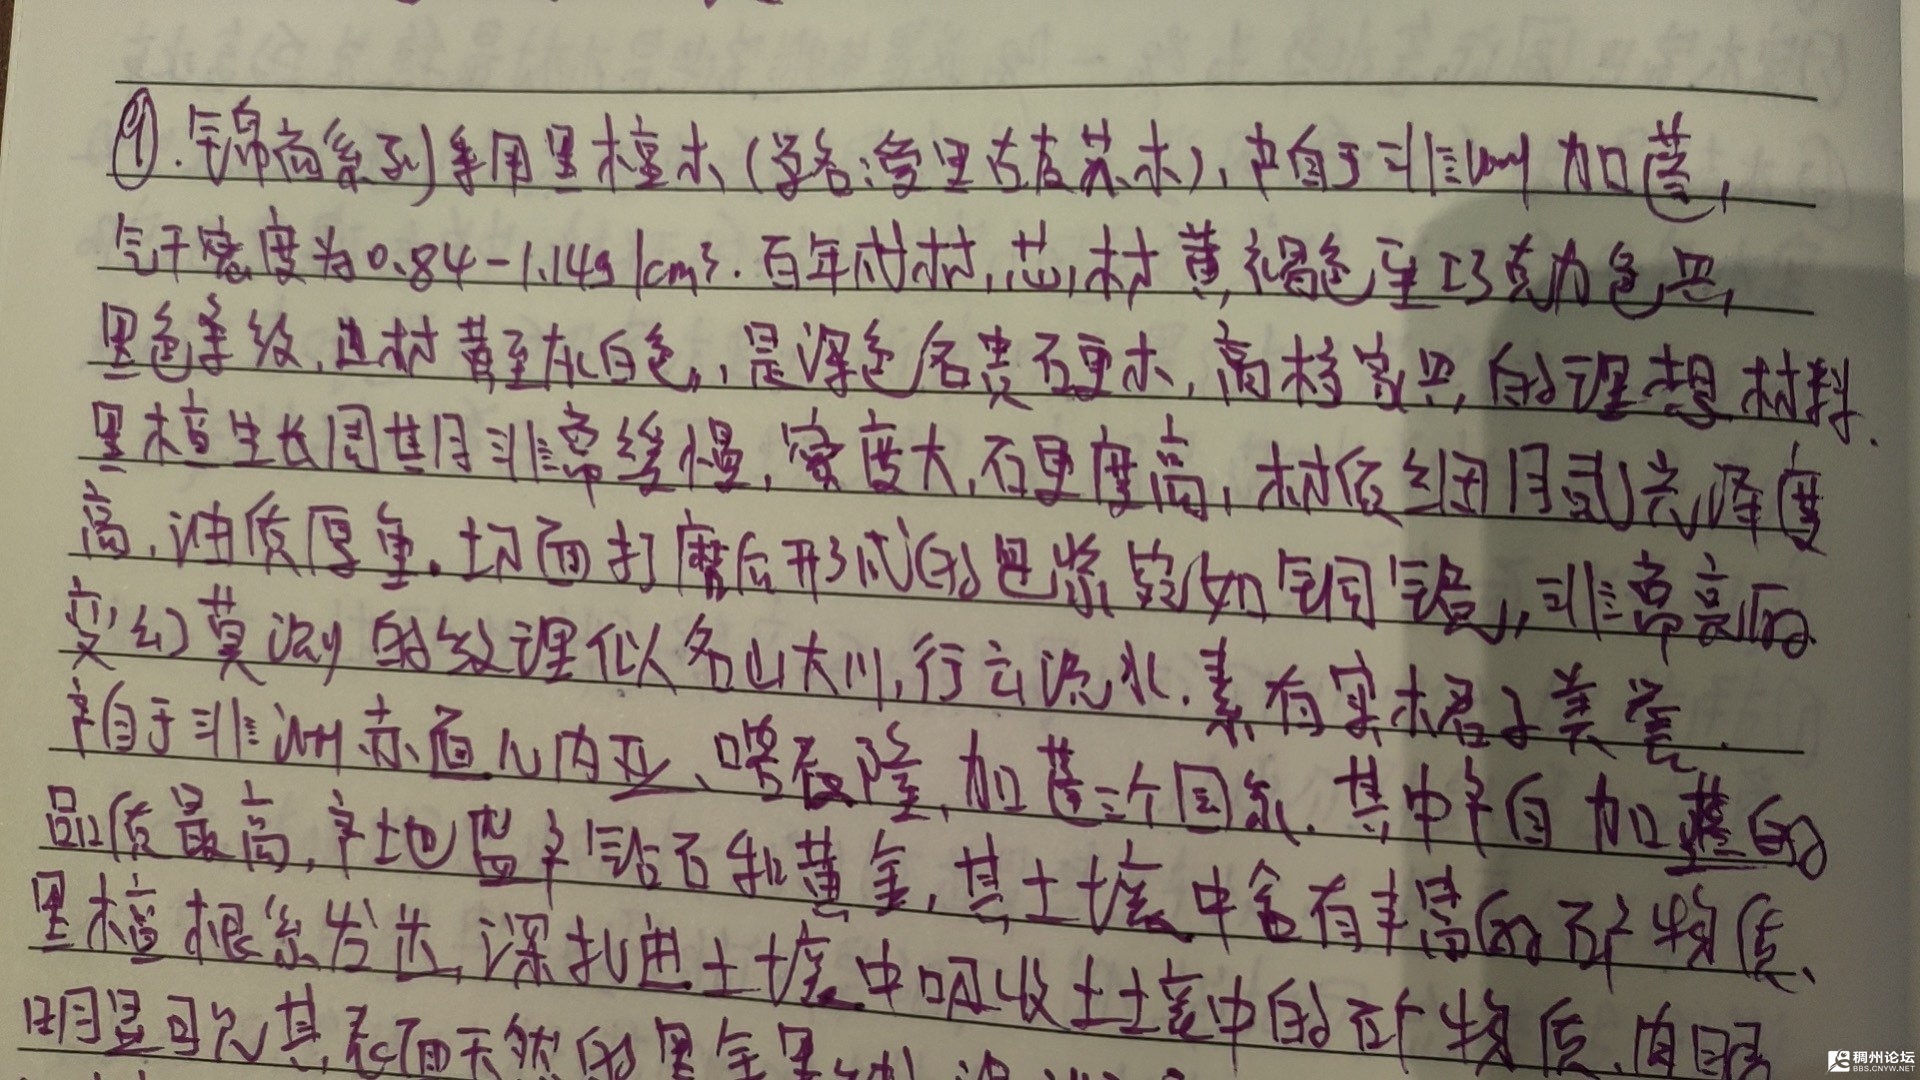 ⑨.锦尚系列采用黑檀木(学名:爱里古夷苏木),产自于非洲加蓬,
气干密度为0.84-1.14g/cm³.百年成材,芯材黄褐色至巧克力色具
黑色条纹,边材黄至灰白色,是深色名贵硬木,高档家具的理想材料.
黑檀生长周期非常缓慢,密度大,硬度高,材质细腻光泽度
高,油质厚重.切面打磨后形成的包浆宛如铜镜,非常高
变幻莫测的纹理似名山大川,行云流水.素有实木君子美誉.
产自于非洲赤道几内亚、喀麦隆,加蓬三个国家.其中产自加蓬的
品质最高,产地盛产钻石和黄金,其土壤中含有丰富的矿物质、
黑檀根系发达,深扎进土壤中吸收土壤中的矿物质,肉眼
明显可见其表面天然的黑金
稠州论坛
BBS.CNYW.NET